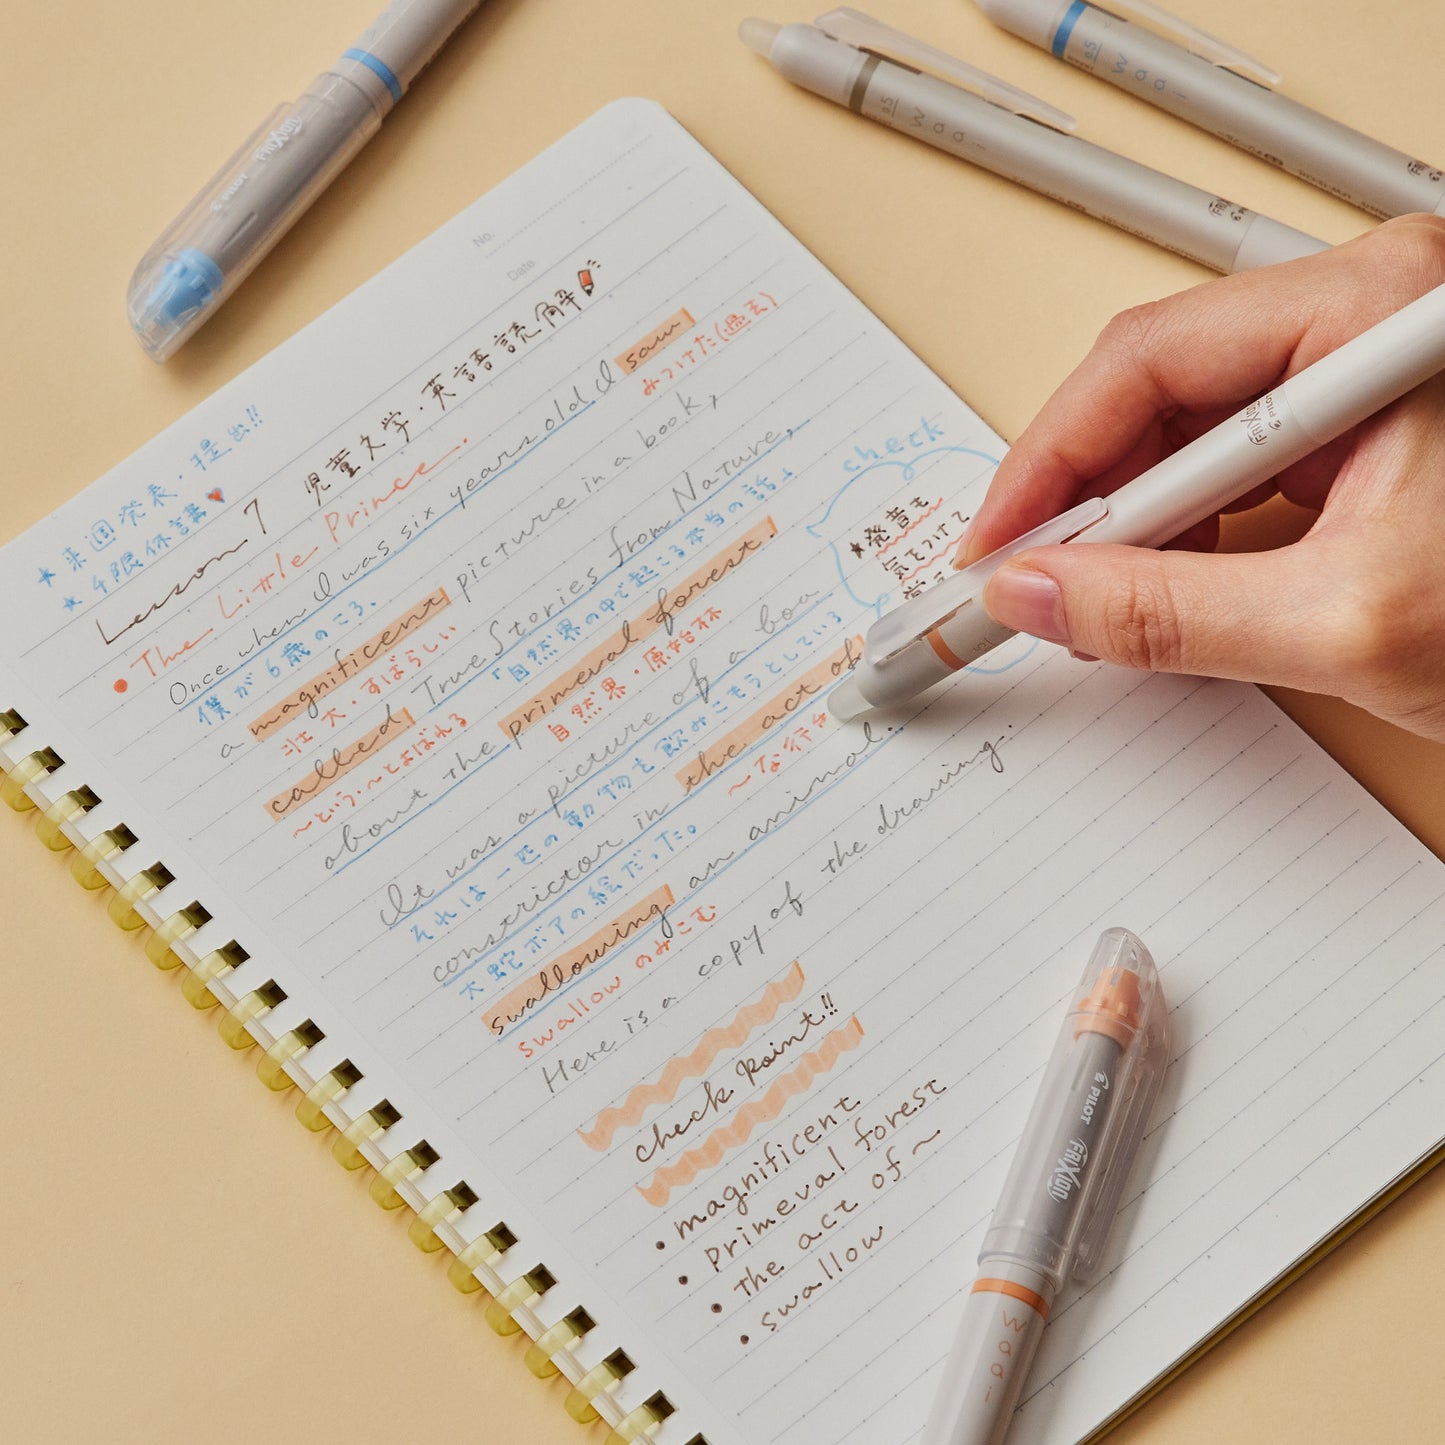 No.
Date
★来週発表・提出!!
★4限休講
Lesson 7 児童文学・英語読解
The Little Prince.
Once when I was six years old I saw
僕が6歳のころ、
みつけた(過去)
a magnificent picture in a book,
壮大・すばらしい
called True Stories from Nature,
〜という、〜とよばれる
「自然界の中で起こる本当の話」
about the primeval forest.
自然界・原始林
It was a picture of a boa
それは一匹の動物を飲みこもうとしている
constrictor in the act of
大蛇ボアの絵だった。
〜な行
swallowing an animal.
swallow のみこむ
Here is a copy of the drawing.
check
★発音も
気をつけて
check point!!
• magnificent
• primeval forest
• the act of 〜
• swallow
PILOT FRIXION
0.5 Waai
FRIXION
0.5 Waai
FRIXION
FRIXION PILOT
PILOT FRIXION
Waai